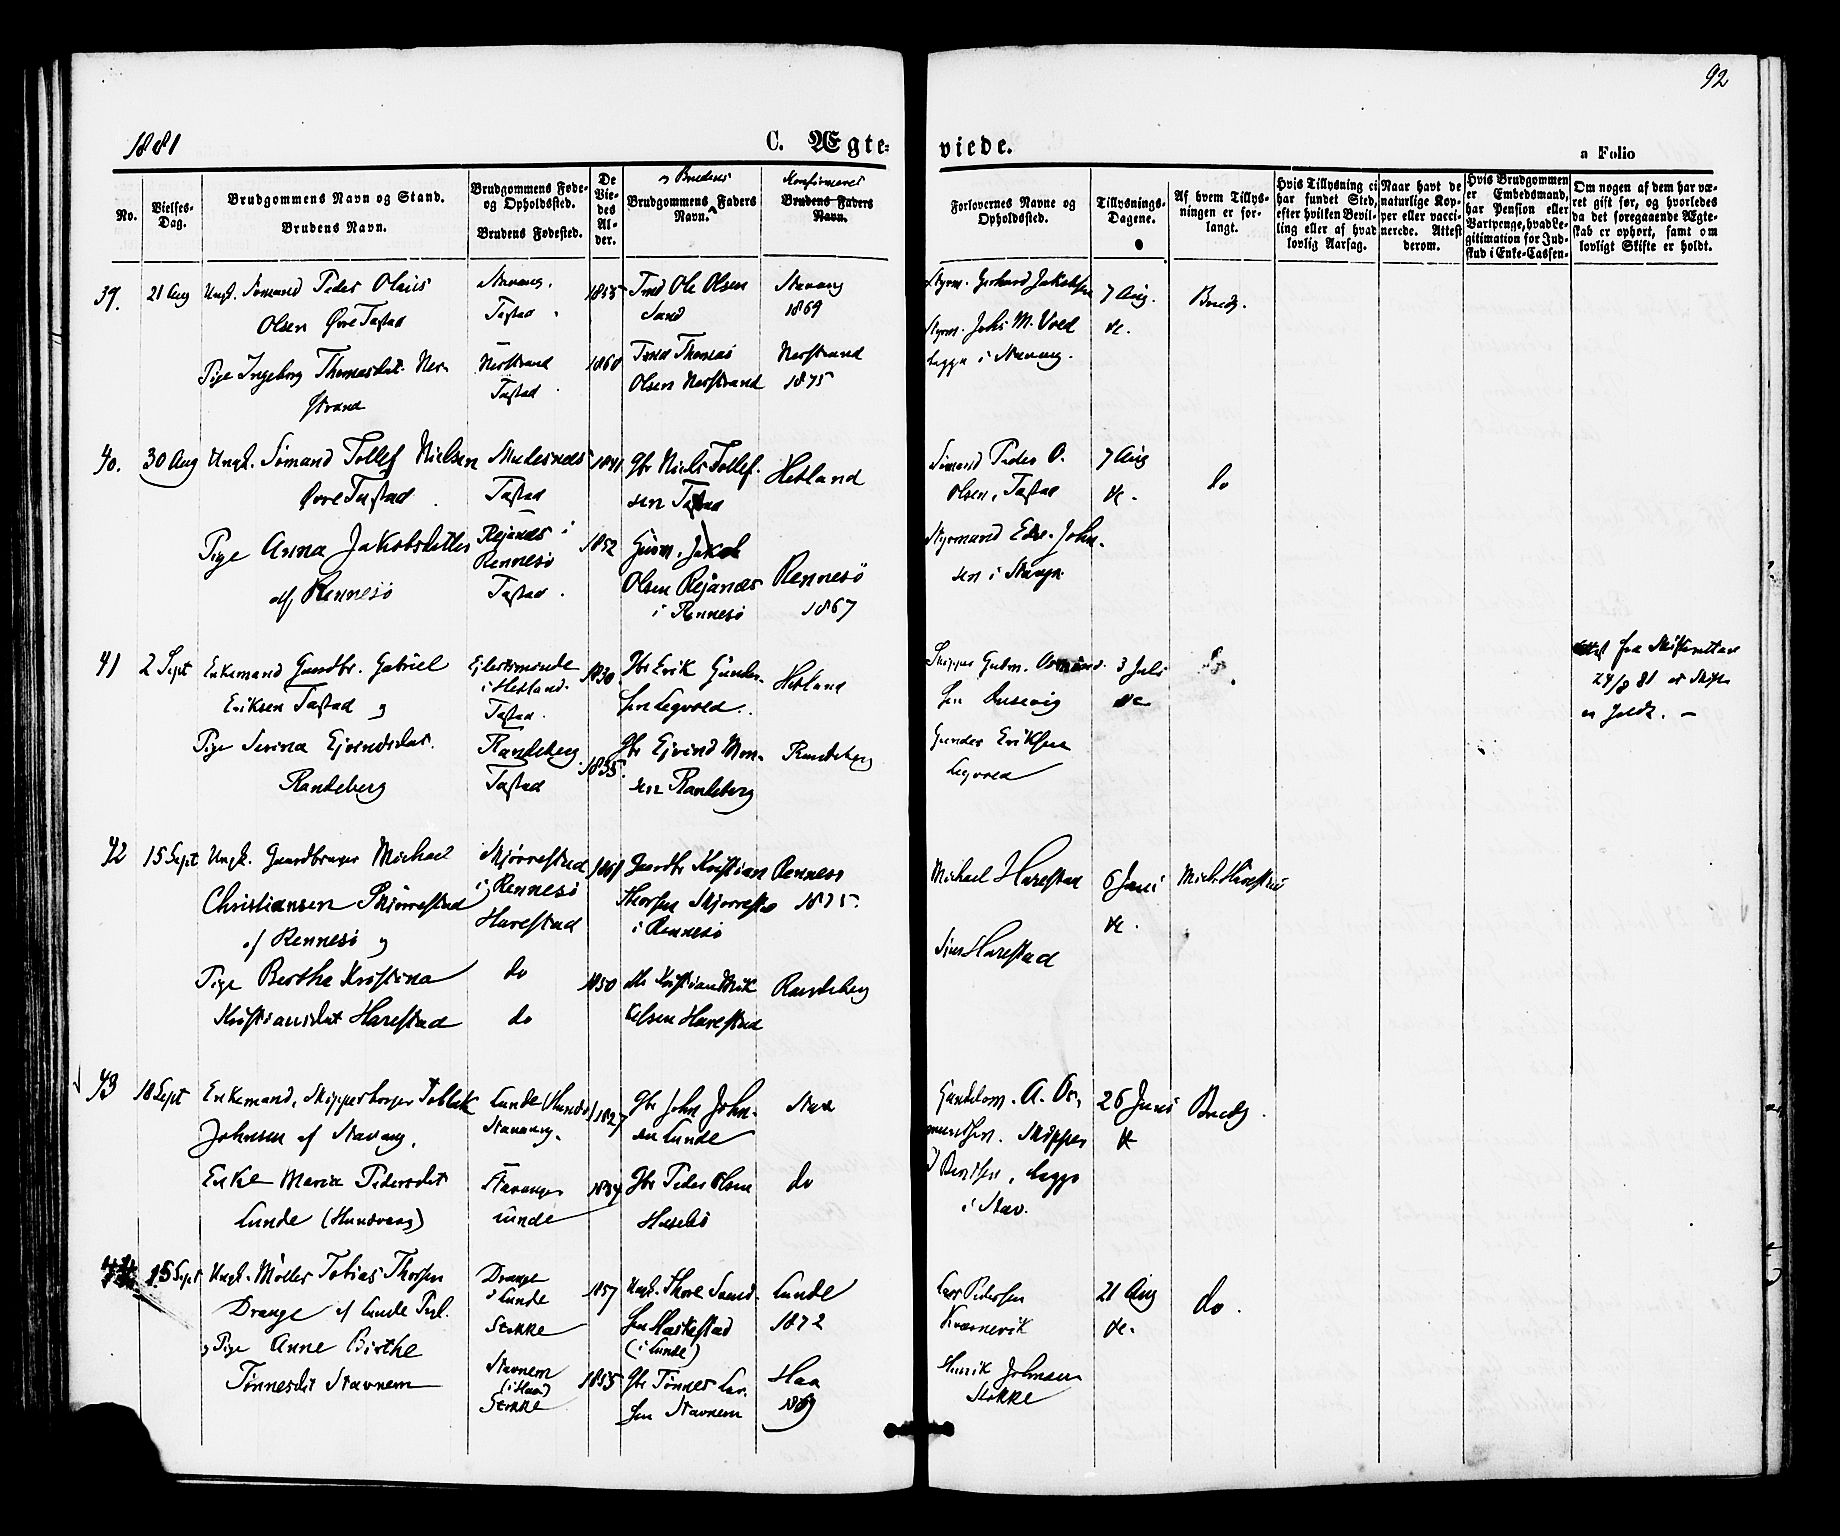 92
1881
C. Ægte-
viede.
a Folio
No.
Vielses-
Dag.
Brudgommens Navn og Stand.
Brudens Navn.
Brudgommens Føde-
og Opholdssted.
Brudens Fødested.
De
Vie-
des
Al-
der.
og Brudens
Brudgommens Faders
Navn.
Konfirmeret
Brudens Faders
Navn.
Forlovernes Navne og
Opholdssted.
Tillysnings-
Dagene.
Af hvem Tillys-
ningen er for-
langt.
Hvis Tillysning ei
har fundet Sted,
efter hvilken Bevil-
ling eller af hvad
lovlig Aarsag.
Naar havt de
naturlige Kop-
per eller vacci-
nerede. Attest
derom.
Hvis Brudgommen
er Embedsmand,
har Pension eller
Vartpenge, hvad Le-
gitimation for Ind-
skud i Enke-Cassen-
Om nogen af dem har væ-
ret gift før, og hvorledes
da det foregaaende Ægte-
skab er ophørt, samt om
lovligt Skifte er holdt.
39.
21 Aug
Ungk. Sømand Peder Olaus
Olsen Øvre Tastad
Pige Ingeborg Thomasdat. Ner-
strand
Stavang.
Tastad
Nerstrand
Tastad
1855
1860
Ole Olsen
Sand
Thomas
Olsen Nerstrand
Stavang
1869
Nerstrand
1875
Styrm. Gerhard Jakobsen
Styrm. Johs M. Voed
begge i Stavang.
7 Aug.
Brudg.
40.
30 Aug
Ungk. Sømand Tollef Nielsen
Øvre Tastad
Pige Anna Jakobsdatter
af Rennesö
Tastad
Rennesö
Tastad
1852
Gbr Niels Tollef-
sen Tastad
Jakob
Olsen
i Rennesö
Hetland
Rennesö
1867
Sömand Peder O.
Olsen, Tastad
Styrmand Edv. John-
sen i Stavgr.
7 Aug
do
41
2 Sept
Enkemand Gaardbr. Gabriel
Eriksen Tastad og
Pige Serina Ejvindsdat.
Randeberg
i Hetland.
Tastad.
Randeberg
Tastad
1830.
1835.
Gbr Erik Gunder-
sen Legvold.
Gbr Ejvind Mon-
sen Randeberg
Hetland
Randeberg
Gunder Eriksen
Legvold
3 Juli
do
fra Skifteretten
24/8 81 at Skifte
er holdt. —
42
15 Sept
Ungk. Gaardbruger Michael
Christiansen Skjörrestad
af Rennesö og
Pige Berthe Kristina
Kristiansdat Harestad
Skjörrestad
i Rennesö
Harestad
do
do
1850
Gaardbr Kristian
Thorsen Skjorrestad
i Rennesö
Harestad
Rennesö
1875.
Randeberg
Michael Harestad
Harestad
6 Juni
Mich. Harestad
43
18 Sept
Enkemand,
Johnsen af Stavang.
Enke Maria Pedersdat
Lunde (Hundvaag)
Stavang.
Stavanger
Lunde
1827
1834
Gbr John John-
sen Lunde
Gbr Peder Olsen
Stav
do
A. As-
Skipper
begge
i Stav.
26 Juni
Brudg.
44
15 Sept
Ungk. Möller Tobias Thorsen
Drange af Lunde
og Pige Anne Birthe
Tönnesdat Stavnem
Drange
i Lunde
Stokke
Stavnem
(i Haa)
Stokke
1857
1855
Thore
(i Lunde)
Gbr Tönnes Lar-
sen Stavnem
Lunde
1872
Haa
1869
Lars Pedersen
Kvernevik
Henrik Johnsen
Stokke
21 Aug
do.